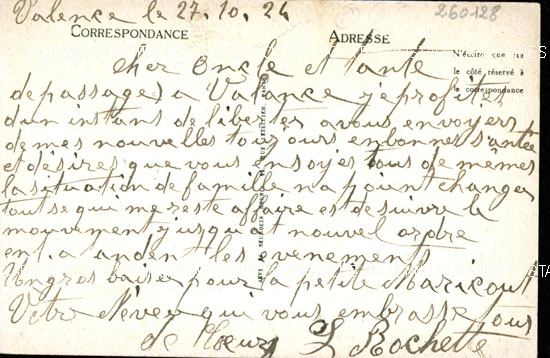 Valence le 27.10.24
260128
CORRESPONDANCE
ADRESSE
N'écrire que sur
le côté réservé à
la correspondance
Cher Oncle et tante
de passage a Valance j'éprofites
d'un instans de liberter a vous envoyers
de mes nouvelles toujours en bonne santée
et désires que vous ensoyes tous de mêmes
la situation de famille na point changer
tout se qui me reste affaire est de suivre le
mouvement jusqu'a nouvel ordre
ent. a tandent les evenement
Un gros baise pour la petite
Votre Neveu qui vous embrasse tous
de Coeur L Rochette